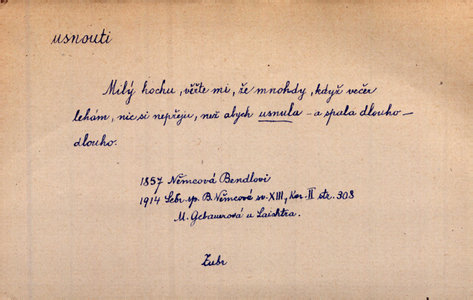 usnouti
Milý hochu, věřte mi, že mnohdy, když večer
lehám, nic si nepřeju, než abych usnula – a spala dlouho –
dlouho.
1857 Němcová Bendlovi
1914 Sebr. sp. B. Němcové sv. XIII, Kor. II str. 308
M. Gebauerová u Laichtra.
Zubr